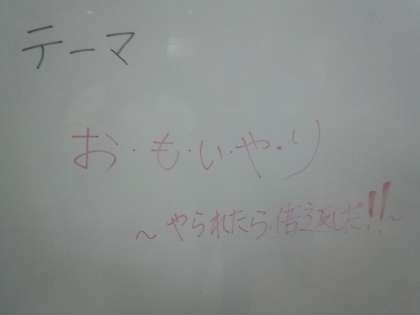 テーマ
お・も・い・や・り
~やられたら倍返しだ!!~